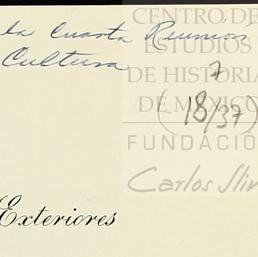 la Cuarta Reunion
Cultura
CENTRO DE
ESTUDIOS
DE HISTORIA
DE MÉXICO
7
(18/37)
FUNDACIÓ
Carlos Sli
Exteriores